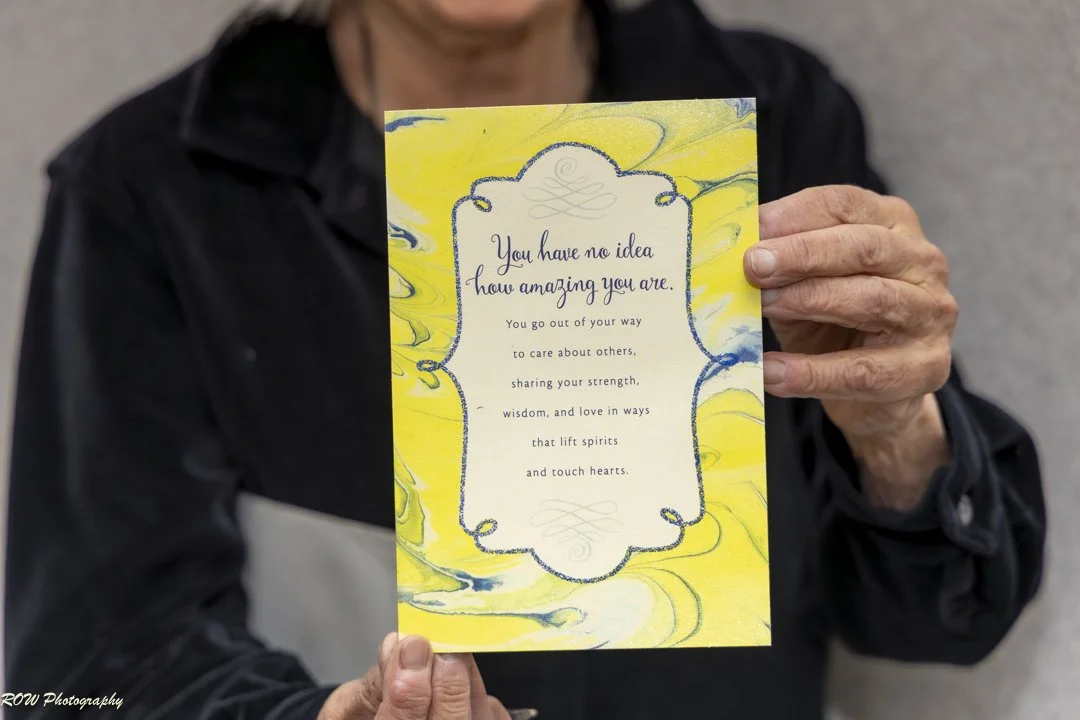 You have no idea
how amazing you are.
You go out of your way
to care about others,
sharing your strength,
wisdom, and love in ways
that lift spirits
and touch hearts.
ROW Photography